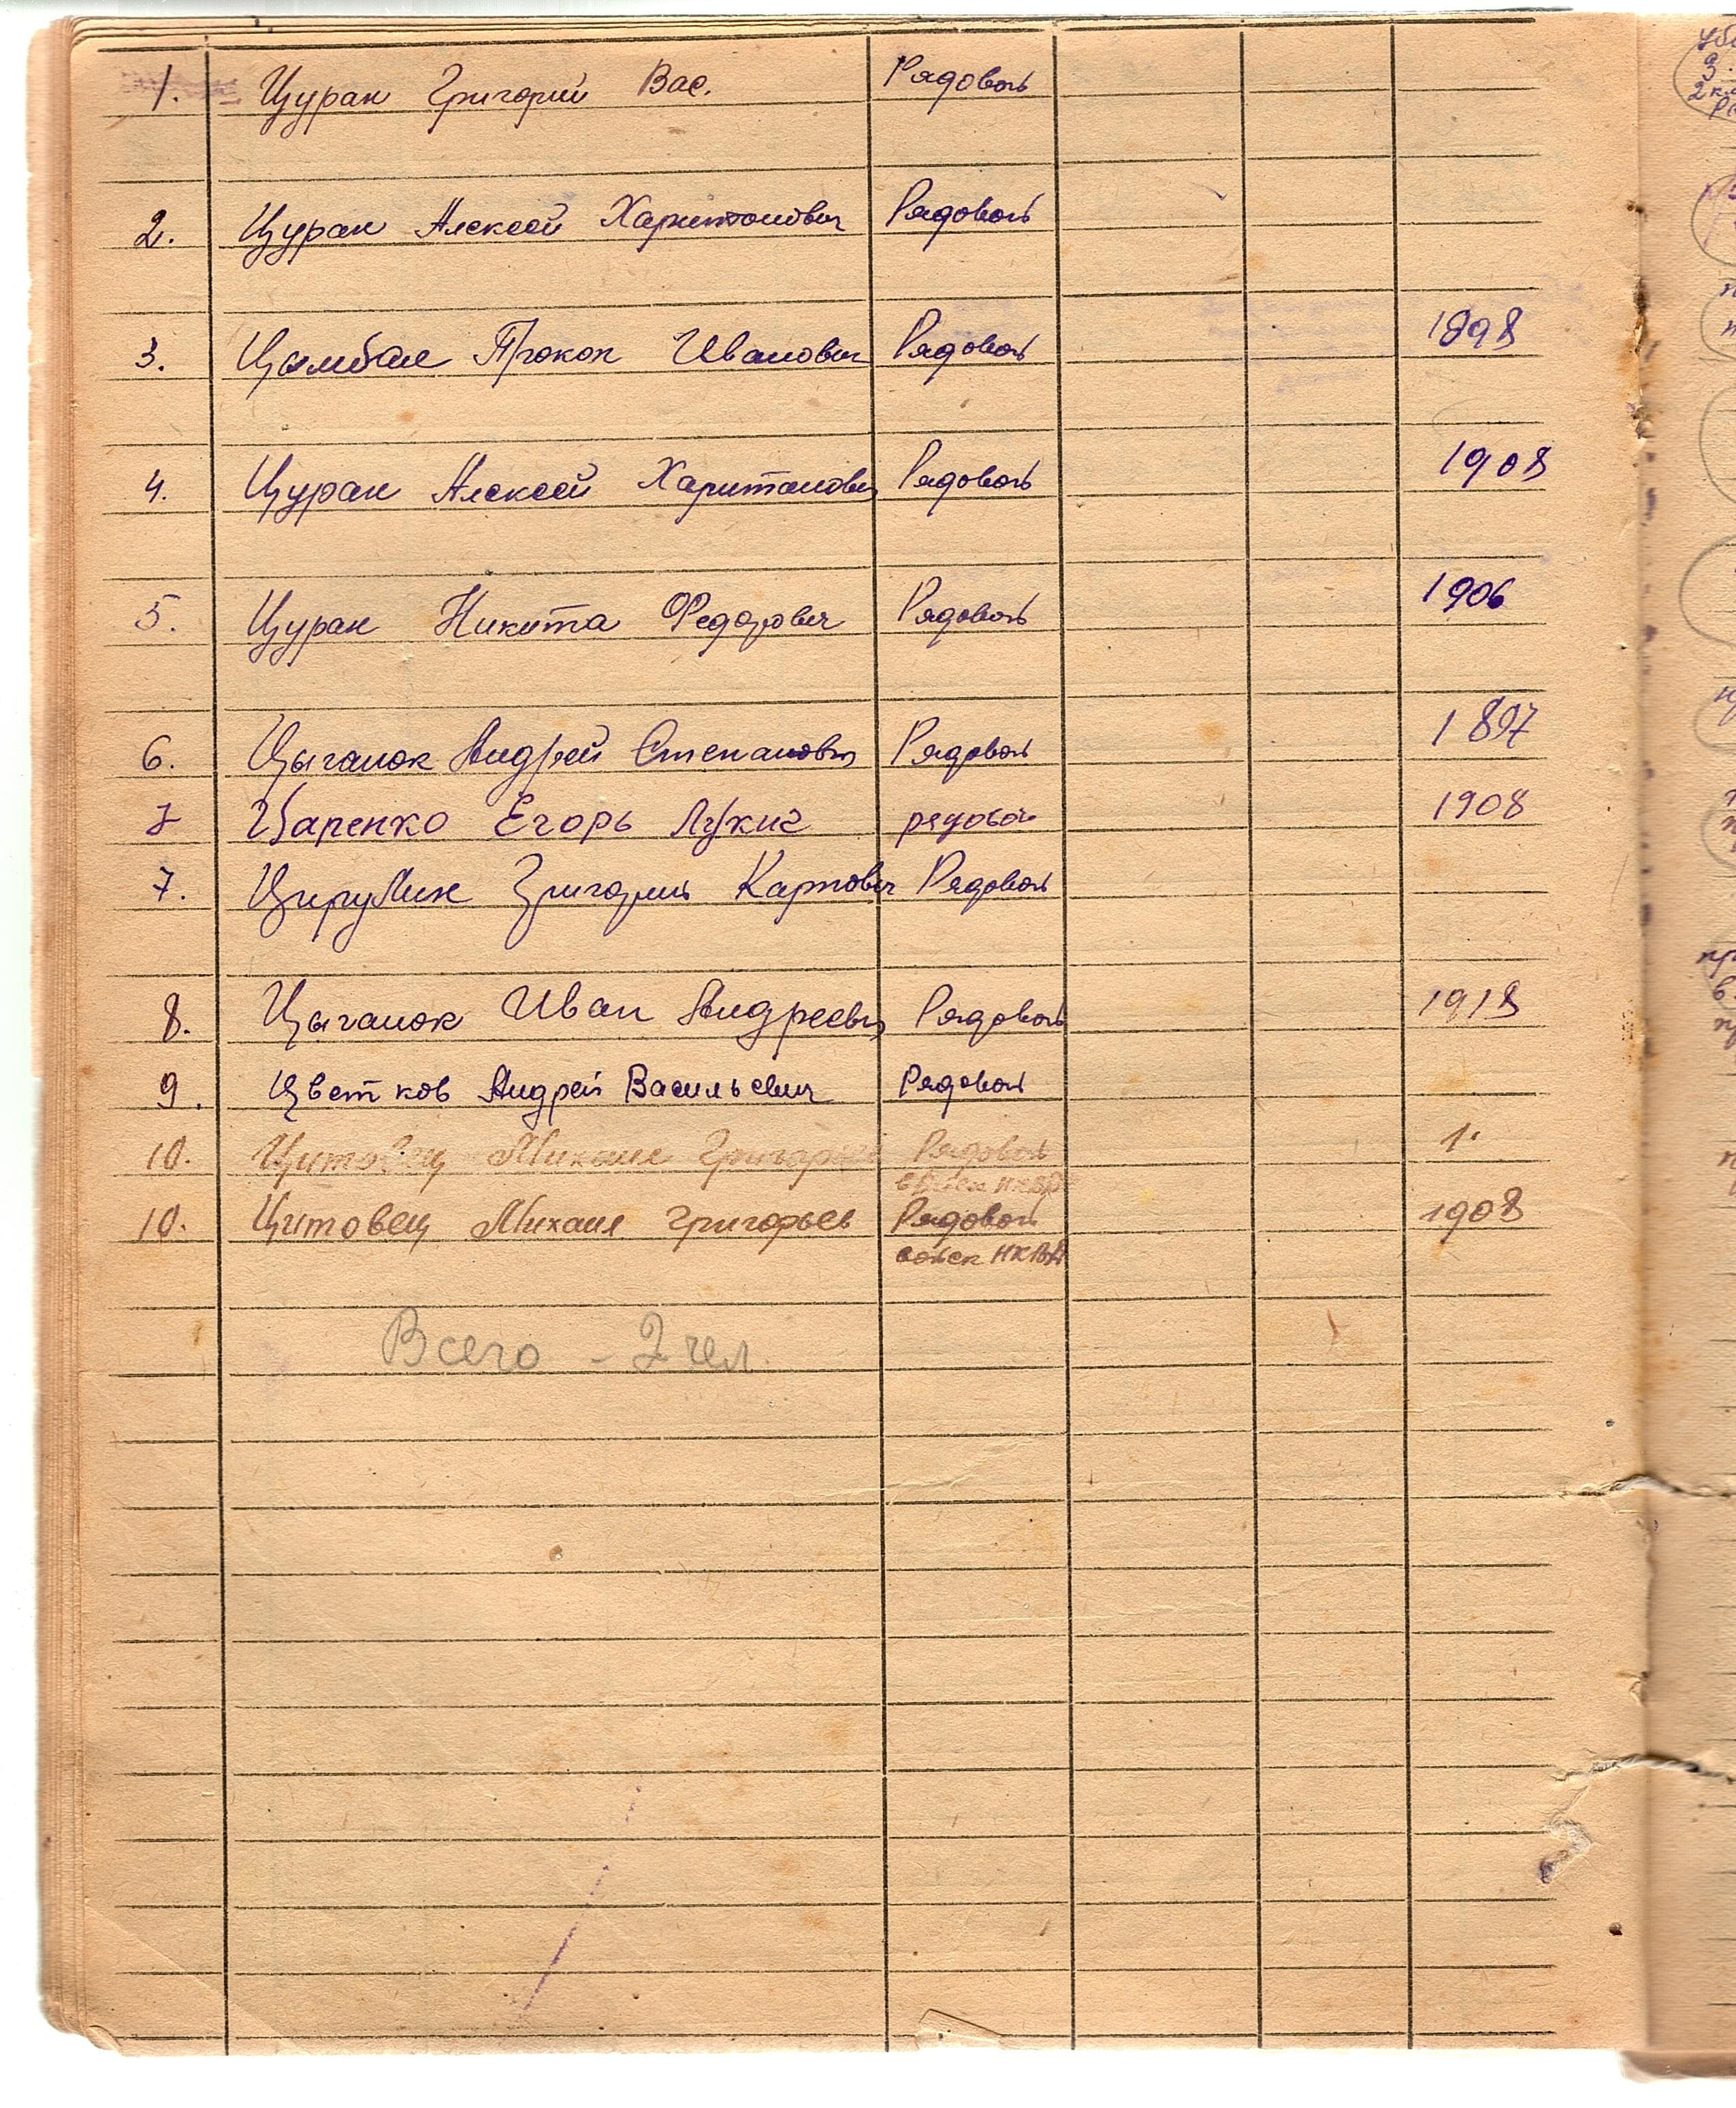 1. Цуран Григорий Вас. Рядовой
2. Цуран Алексей Харитонович Рядовой
3. Цымбал Прокоп Иванович Рядовой 1898
4. Цуран Алексей Харитонович Рядовой 1908
5. Цуран Никита Федорович Рядовой 1906
6. Цыганок Андрей Степанович Рядовой 1897
7 Царенко Егорь Лукич рядовой 1908
7. Григорий Карпович Рядовой
8. Цыганок Иван Андреевич Рядовой 1918
9. Цветков Андрей Васильевич Рядовой
10. Цитовец Михаил Григорьев Рядовой 1.
войск НКВД
10. Цитовец Михаил Григорьев Рядовой 1908
войск НКВД
Всего - 2 чел.